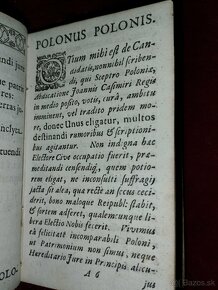 POLONUS POLONIS.
Otium mihi est de Can-
didatis, nonnihil scriben-
di, qui Sceptro Poloniæ,
Abdicatione Joannis Casimiri Regis
in medio posito, votis, curâ, ambitu
immoventur, vel tradito pridem mo-
re, donec Unus eligatur, multos
destinandi rumoribus & scriptioni-
bus agitantur. Non indigna hæc
Electore Cive occupatio fuerit, præ-
meditandi censendiq, quem potis-
simum eligat, ne inconsulto suffragij
jactu sub ipso electionis actu cæco
ceciderit, bono maloque Reipubl. stabit,
& sortem adverset, quam liberius
Electio Nobis fecerit. Vivimus
eâ felicitate incomparabili Poloni,
ut Patrimonium non simus, neque
Hæreditario Jure in Principis alicu-
A 6
jus